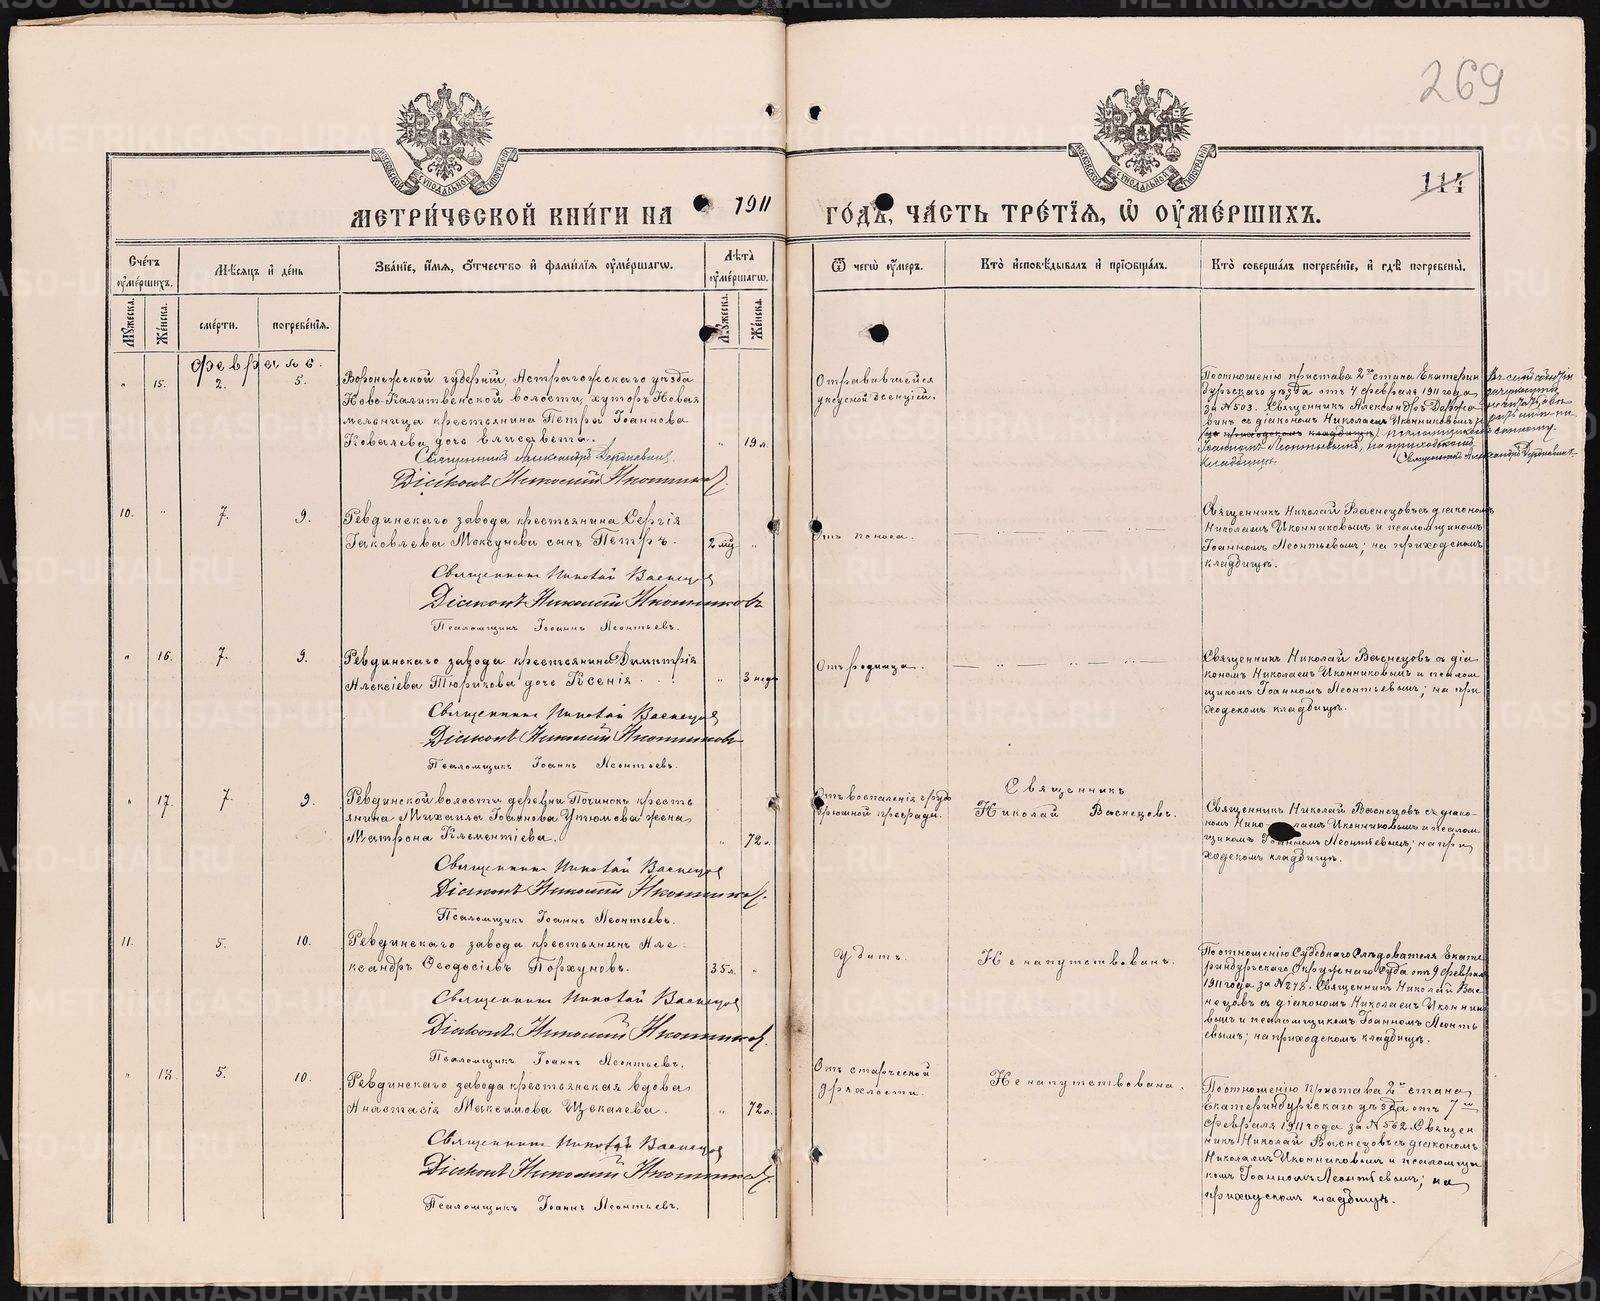 269
114
МОСКОВСКОЙ СѴНОДАЛЬНОЙ ТИПОГРАФІИ
МОСКОВСКОЙ СѴНОДАЛЬНОЙ ТИПОГРАФІИ
МЕТРИ́ЧЕСКОЙ КНИ́ГИ НА 1911 ГО́ДЪ, ЧА́СТЬ ТРЕ́ТІѦ, Ѡ ОУМЕ́РШИХЪ.
Сче́тъ оуме́ршихъ.
Мѣсяцъ и де́нь
Зва́ніе, и́мя, о́тчество и фами́лія оуме́ршагѡ.
Лѣта̀ оуме́ршагѡ.
Ѿ чегѡ̀ оу́меръ.
Кто̀ исповѣ́дывалъ и пріѡбща́лъ.
Кто̀ соверша́лъ погребе́ніе, и гдѣ̀ погребены̀.
Мꙋ́жеска.
Же́нска.
сме́рти.
погребе́нія.
Мꙋ́жеска.
Же́нска.
Февраль.
„ 15. 2. 5.
Воронежской губерніи, Астрагожскаго уѣзда
Ново-Калитвенской волости, хуторъ Новая
мельница крестьянина Петра Іоаннова
Ковалева дочь Елисавета.
„ 19 л.
Священникъ Александръ Державинъ.
Діаконъ Николай Иконников.
Отравившейся
уксусной эссенціей.
По отношенію пристава 2го стана Екатерин
бургскаго уѣзда отъ 4 февраля 1911 года
за № 503. Священникъ Александръ Держа
винъ съ діакономъ Николаемъ Иконниковымъ
на приходскомъ кладбищѣ псаломщикомъ
Іоанномъ Леонтьевымъ, на приходскомъ
кладбищѣ.
Священникъ Александръ Державинъ
10. „ 7. 9.
Ревдинскаго завода крестьянина Сергія
Іаковлева Моксунова сынъ Петръ.
2 мц „
Священник Николай Васнецов
Діаконъ Николай Иконниковъ
Псаломщикъ Іоаннъ Леонтьевъ.
Отъ поноса.
Священникъ Николай Васнецовъ съ діакономъ
Николаемъ Иконниковымъ и псаломщикомъ
Іоанномъ Леонтьевымъ; на приходскомъ
кладбищѣ.
„ 16. 7. 9.
Ревдинскаго завода крестьянина Димитрія
Алексіева Тюрикова дочь Ксенія.
„ 3 нед
Священник Николай Васнецов
Діаконъ Николай Иконниковъ
Псаломщикъ Іоаннъ Леонтьевъ.
Отъ родимца.
Священникъ Николай Васнецовъ съ діа
кономъ Николаемъ Иконниковымъ и псалом
щикомъ Іоанномъ Леонтьевымъ; на при
ходскомъ кладбищѣ.
„ 17. 7. 9.
Ревдинской волости деревни Починокъ кресть
янина Михаила Іоаннова Утюмова жена
Матрона Климентіева.
„ 72 л.
Священник Николай Васнецов
Діаконъ Николай Иконников.
Псаломщикъ Іоаннъ Леонтьевъ.
Отъ воспаленія грудо
брюшной преграды.
Священникъ
Николай Васнецовъ.
Священникъ Николай Васнецовъ съ діако-
номъ Николаемъ Иконниковымъ и псалом
щикомъ Іоанномъ Леонтьевымъ; на при
ходскомъ кладбищѣ.
11. 5. 10.
Ревдинскаго завода крестьянинъ Але
ксандръ Ѳеодосіевъ Порхуновъ.
35 л. „
Священник Николай Васнецов
Діаконъ Николай Иконников.
Псаломщикъ Іоаннъ Леонтьевъ.
Убитъ.
Не напутствованъ.
По отношенію Судебнаго Слѣдователя Екате
ринбургскаго Окружнаго Суда отъ 9 февраля
1911 года за № 278. Священникъ Николай Вас
нецовъ съ діакономъ Николаемъ Иконнико
вымъ и псаломщикомъ Іоанномъ Леонть
евымъ; на приходскомъ кладбищѣ.
„ 18. 5. 10.
Ревдинскаго завода крестьянская вдова
Анастасія Максимова Щекалева.
„ 72 л.
Священник Николай Васнецов
Діаконъ Николай Иконников.
Псаломщикъ Іоаннъ Леонтьевъ.
Отъ старческой
дряхлости.
Не напутствована.
По отношенію Пристава 2го стана
Екатеринбургскаго уѣзда отъ 7го
февраля 1911 года за № 562. Священ
никъ Николай Васнецовъ съ діакономъ
Николаемъ Иконниковымъ и псаломщи
комъ Іоанномъ Леонтьевымъ; на
приходскомъ кладбищѣ.
METRIKI.GASO-URAL.RU